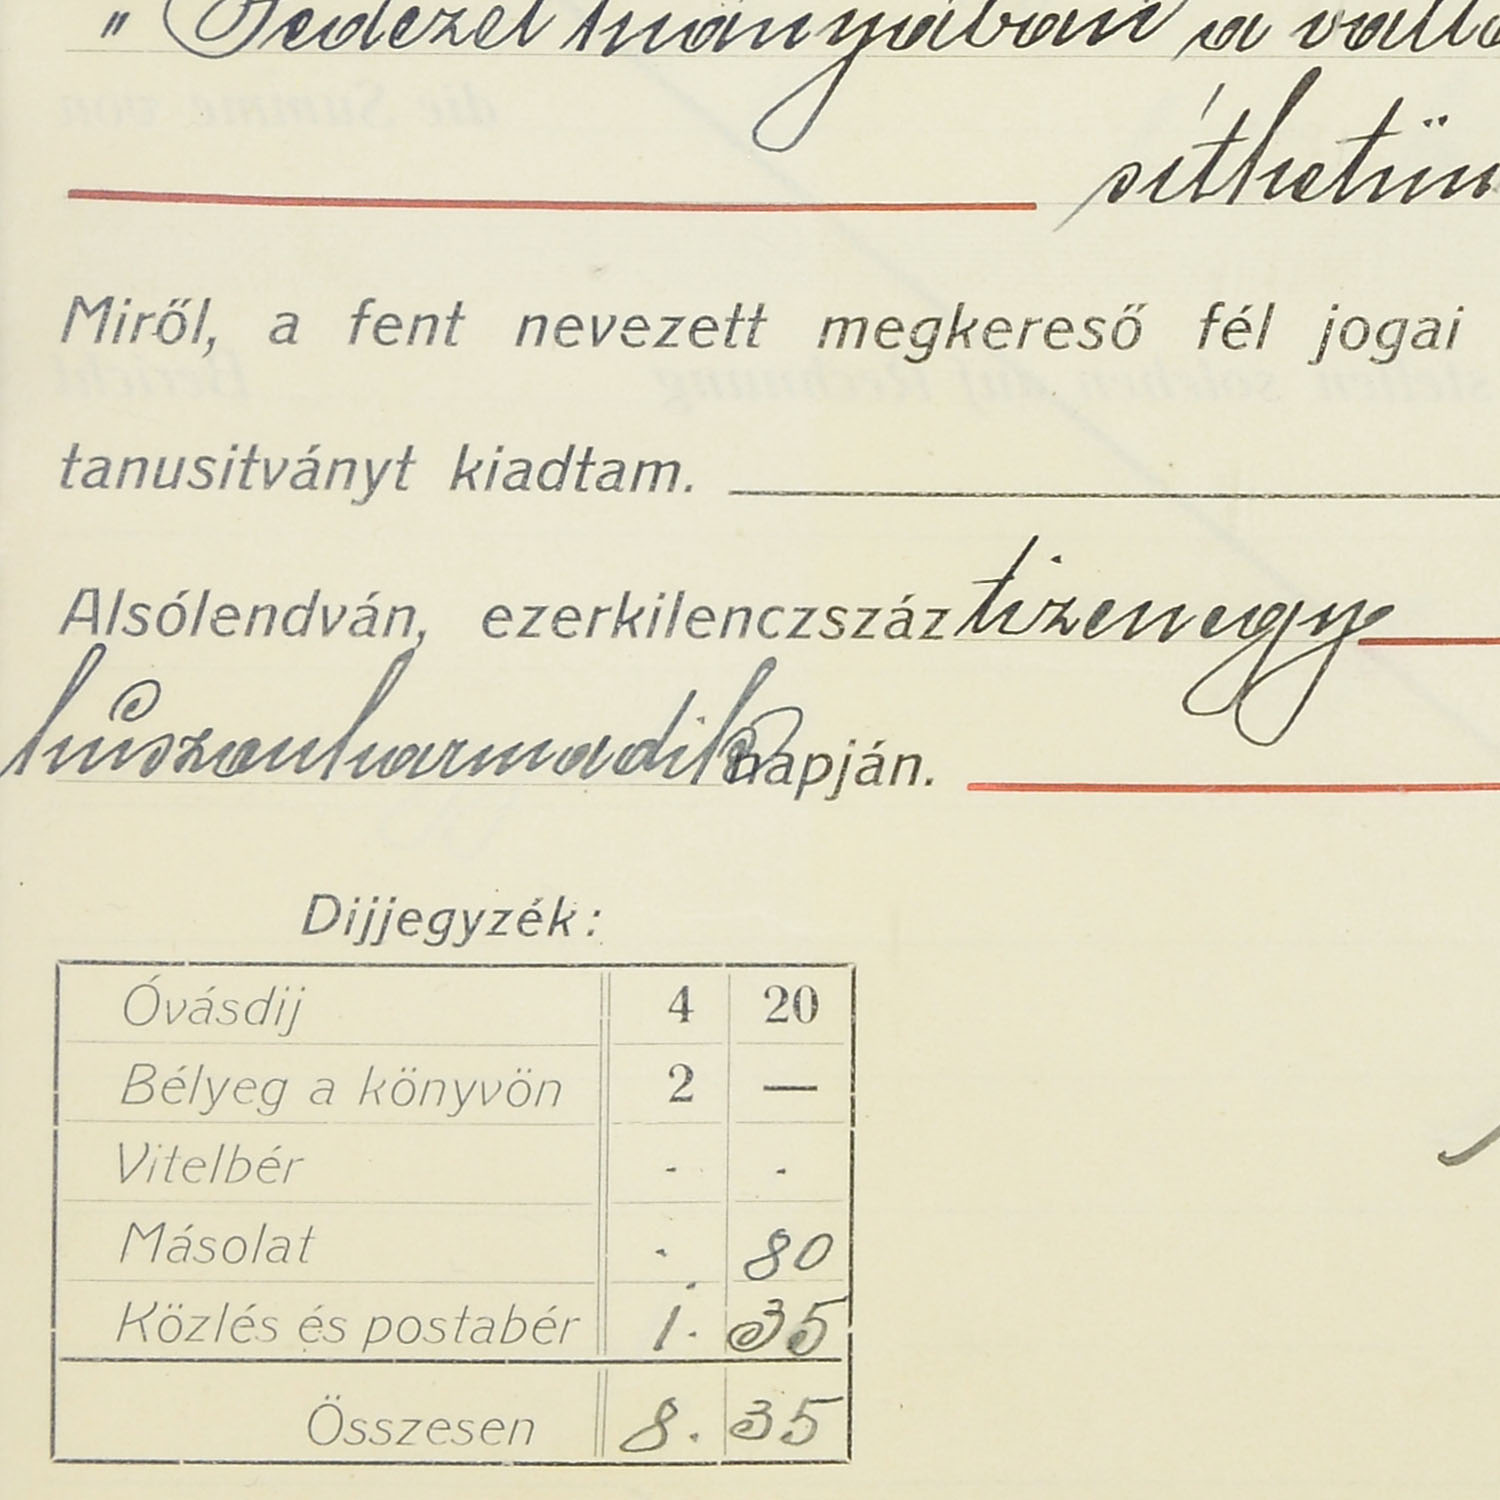 " Fedezet hiányában a
síthetün
Miről, a fent nevezett megkereső fél jogai
tanusitványt kiadtam.
Alsólendván, ezerkilenczszáz tizenegy
húszonharmadik napján.
Dijjegyzék:
Óvásdij 4 20
Bélyeg a könyvön 2 —
Vitelbér - -
Másolat . 80
Közlés és postabér 1. 35
Összesen 8. 35